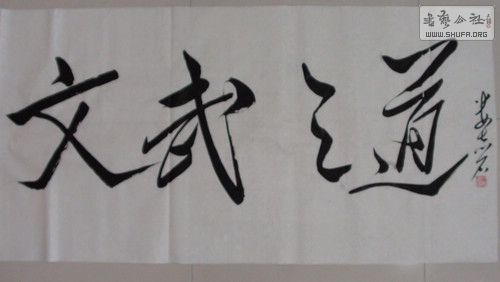 文武之道
书艺公社
WWW.SHUFA.ORG